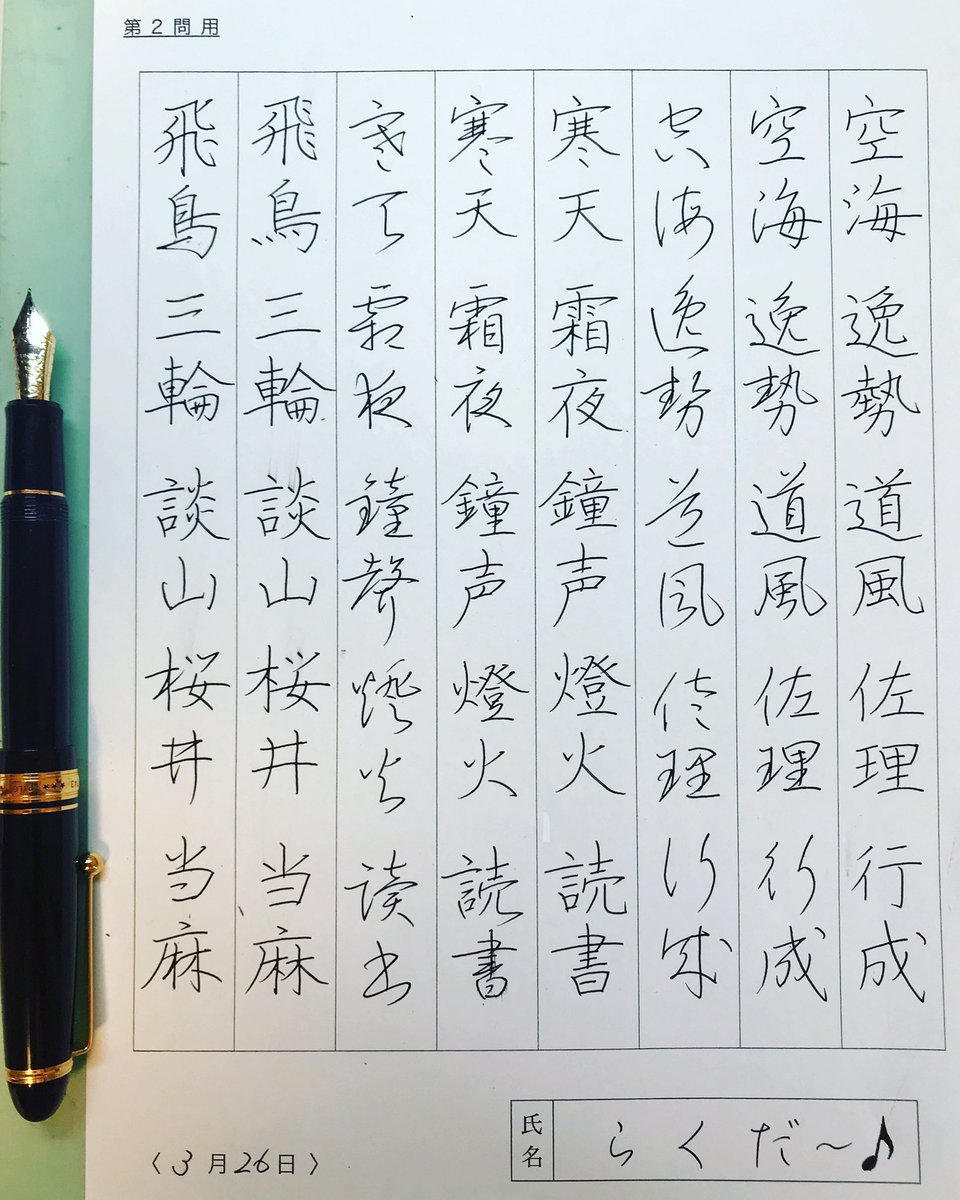 第2問用
空海逸勢道風佐理行成
空海逸勢道風佐理行成
空海逸勢道風佐理行成
寒天霜夜鐘声燈火読書
寒天霜夜鐘声燈火読書
寒天霜夜鐘聲燈火讀書
飛鳥三輪談山桜井当麻
飛鳥三輪談山桜井当麻
〈3月26日〉
氏名 らくだ〜♪